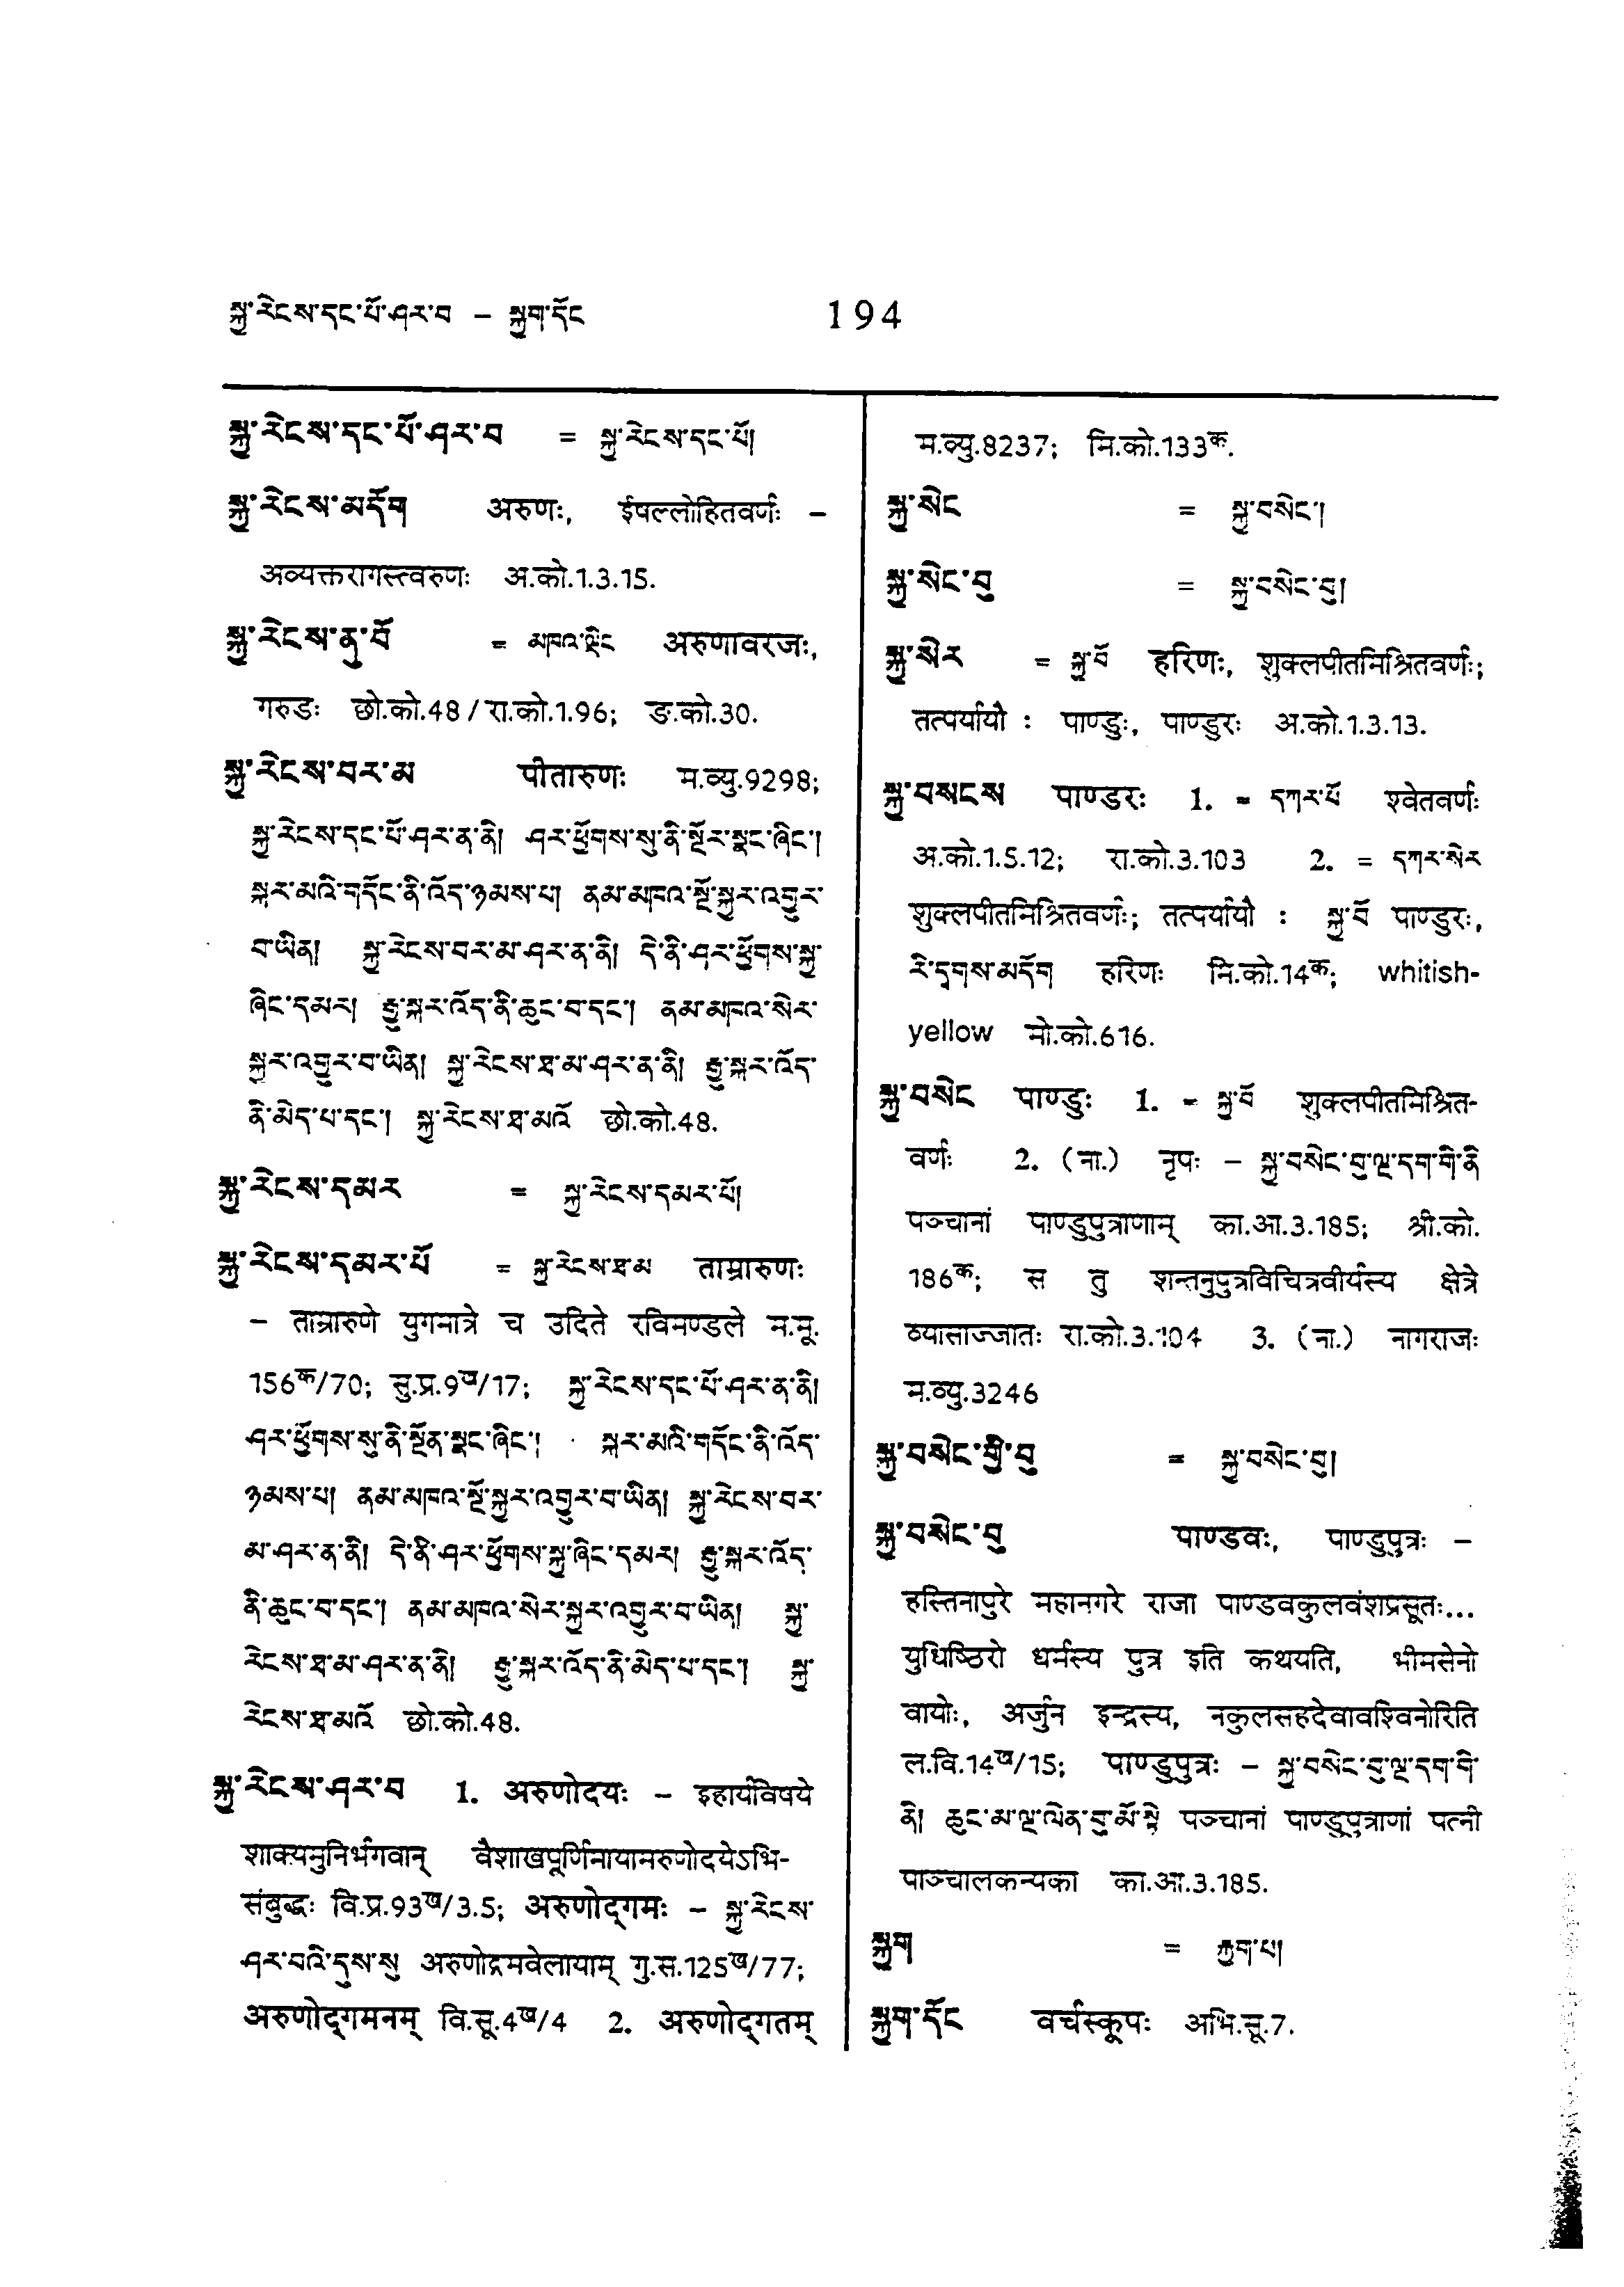 སྐྱ་རེངས་དང་པོ་ཤར་བ – སྐྱུག་དོང 194
སྐྱ་རེངས་དང་པོ་ཤར་བ = སྐྱ་རེངས་དང་པོ།
སྐྱ་རེངས་མདོག अरुणः, ईषल्लोहितवर्णः –
अव्यक्तरागस्त्वरुणः अ.को.1.3.15.
སྐྱ་རེངས་ནུ་བོ = མཁའ་ལྡིང अरुणावरजः,
गरुडः छो.को.48/रा.को.1.96; ङ.को.30.
སྐྱ་རེངས་བར་མ पीतारुणः म.व्यु.9298;
སྐྱ་རེངས་དང་པོ་ཤར་ན་ནི། ཤར་ཕྱོགས་སུ་ནི་སྔོར་སྣང་ཞིང་།
སྐར་མའི་གདོང་ནི་འོད་ཉམས་པ། ནམ་མཁའ་སྔོ་སྐྱར་འགྱུར་
བ་ཡིན། སྐྱ་རེངས་བར་མ་ཤར་ན་ནི། དེ་ནི་ཤར་ཕྱོགས་སྐྱ་
ཞིང་དམར། རྒྱུ་སྐར་འོད་ནི་ཆུང་བ་དང་། ནམ་མཁའ་སེར་
སྐྱར་འགྱུར་བ་ཡིན། སྐྱ་རེངས་ཐ་མ་ཤར་ན་ནི། རྒྱུ་སྐར་འོད་
ནི་མེད་པ་དང་། སྐྱ་རེངས་ཐ་མའོ छो.को.48.
སྐྱ་རེངས་དམར = སྐྱ་རེངས་དམར་པོ།
སྐྱ་རེངས་དམར་པོ = སྐྱ་རེངས་ཐ་མ ताम्रारुणः
– ताम्रारुणे युगमात्रे च उदिते रविमण्डले म.मू.
156क/70; सु.प्र.9ख/17; སྐྱ་རེངས་དང་པོ་ཤར་ན་ནི།
ཤར་ཕྱོགས་སུ་ནི་སྔོན་སྣང་ཞིང་། སྐར་མའི་གདོང་ནི་འོད་
ཉམས་པ། ནམ་མཁའ་སྔོ་སྐྱར་འགྱུར་བ་ཡིན། སྐྱ་རེངས་བར་
མ་ཤར་ན་ནི། དེ་ནི་ཤར་ཕྱོགས་སྐྱ་ཞིང་དམར། རྒྱུ་སྐར་འོད་
ནི་ཆུང་བ་དང་། ནམ་མཁའ་སེར་སྐྱར་འགྱུར་བ་ཡིན། སྐྱ་
རེངས་ཐ་མ་ཤར་ན་ནི། རྒྱུ་སྐར་འོད་ནི་མེད་པ་དང་། སྐྱ་
རེངས་ཐ་མའོ छो.को.48.
སྐྱ་རེངས་ཤར་བ 1. अरुणोदयः – इहार्यविषये
शाक्यमुनिर्भगवान् वैशाखपूर्णिमायामरुणोदयेऽभि-
संबुद्धः वि.प्र.93ख/3.5; अरुणोद्गमः – སྐྱ་རེངས་
ཤར་བའི་དུས་སུ अरुणोद्गमवेलायाम् गु.स.125ख/77;
अरुणोद्गमनम् वि.सू.4ख/4 2. अरुणोद्गतम्
म.व्यु.8237; मि.को.133क.
སྐྱ་སེང = སྐྱ་བསེང་།
སྐྱ་སེང་བུ = སྐྱ་བསེང་བུ།
སྐྱ་སེར = སྐྱ་བོ हरिणः, शुक्लपीतमिश्रितवर्णः;
तत्पर्यायौ : पाण्डुः, पाण्डुरः अ.को.1.3.13.
སྐྱ་བསངས पाण्डरः 1. = དཀར་པོ श्वेतवर्णः
अ.को.1.5.12; रा.को.3.103 2. = དཀར་སེར
शुक्लपीतमिश्रितवर्णः; तत्पर्यायौ : སྐྱ་བོ पाण्डुरः,
རི་དྭགས་མདོག हरिणः मि.को.14क; whitish-
yellow मो.को.616.
སྐྱ་བསེང पाण्डुः 1. = སྐྱ་བོ शुक्लपीतमिश्रित-
वर्णः 2. (ना.) नृपः – སྐྱ་བསེང་བུ་ལྔ་དག་གི་ནི
पञ्चानां पाण्डुपुत्राणाम् का.आ.3.185; श्री.को.
186क; स तु शन्तनुपुत्रविचित्रवीर्यस्य क्षेत्रे
व्यासाज्जातः रा.को.3.104 3. (ना.) नागराजः
म.व्यु.3246
སྐྱ་བསེང་གྱི་བུ = སྐྱ་བསེང་བུ།
སྐྱ་བསེང་བུ पाण्डवः, पाण्डुपुत्रः –
हस्तिनापुरे महानगरे राजा पाण्डवकुलवंशप्रसूतः...
युधिष्ठिरो धर्मस्य पुत्र इति कथयति, भीमसेनो
वायोः, अर्जुन इन्द्रस्य, नकुलसहदेवावश्विनोरिति
ल.वि.14ख/15; पाण्डुपुत्रः – སྐྱ་བསེང་བུ་ལྔ་དག་གི་
ནི། ཆུང་མ་ལྔ་ལེན་བུ་མོ་སྟེ पञ्चानां पाण्डुपुत्राणां पत्नी
पाञ्चालकन्यका का.आ.3.185.
སྐྱུག = རྐྱུག་པ།
སྐྱུག་དོང वर्चस्कूपः अभि.सू.7.